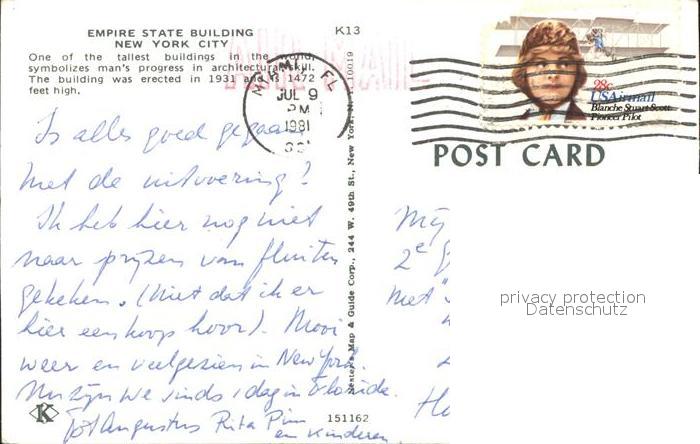 EMPIRE STATE BUILDING
NEW YORK CITY
One of the tallest buildings in the world,
symbolizes man's progress in architectural skill.
The building was erected in 1931 and is 1472
feet high.
K13
AIR MAIL
MIAMI, FL
JUL 9
PM
1981
28c
USAirmail
Blanche Stuart Scott
Pioneer Pilot
POST CARD
Is alles goed gegaan
met de uitvoering?
Ik heb hier nog niet
naar prijzen van fluiten
gekeken. (Niet dat ik er
hier een koop hoor). Mooi
weer en veel gezien in New York.
Nu zijn we sinds 1 dag in Florida.
Tot Augustus Rita Pim
en kinderen
Nester's Map & Guide Corp., 244 W. 49th St., New York, N.Y. 10019
2e
met
privacy protection
Datenschutz
K
151162